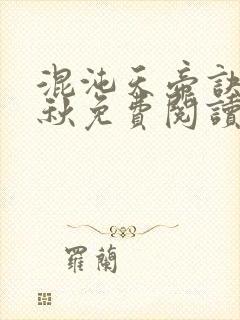 混沌天帝訣
秋免費閱讀
羅蘭